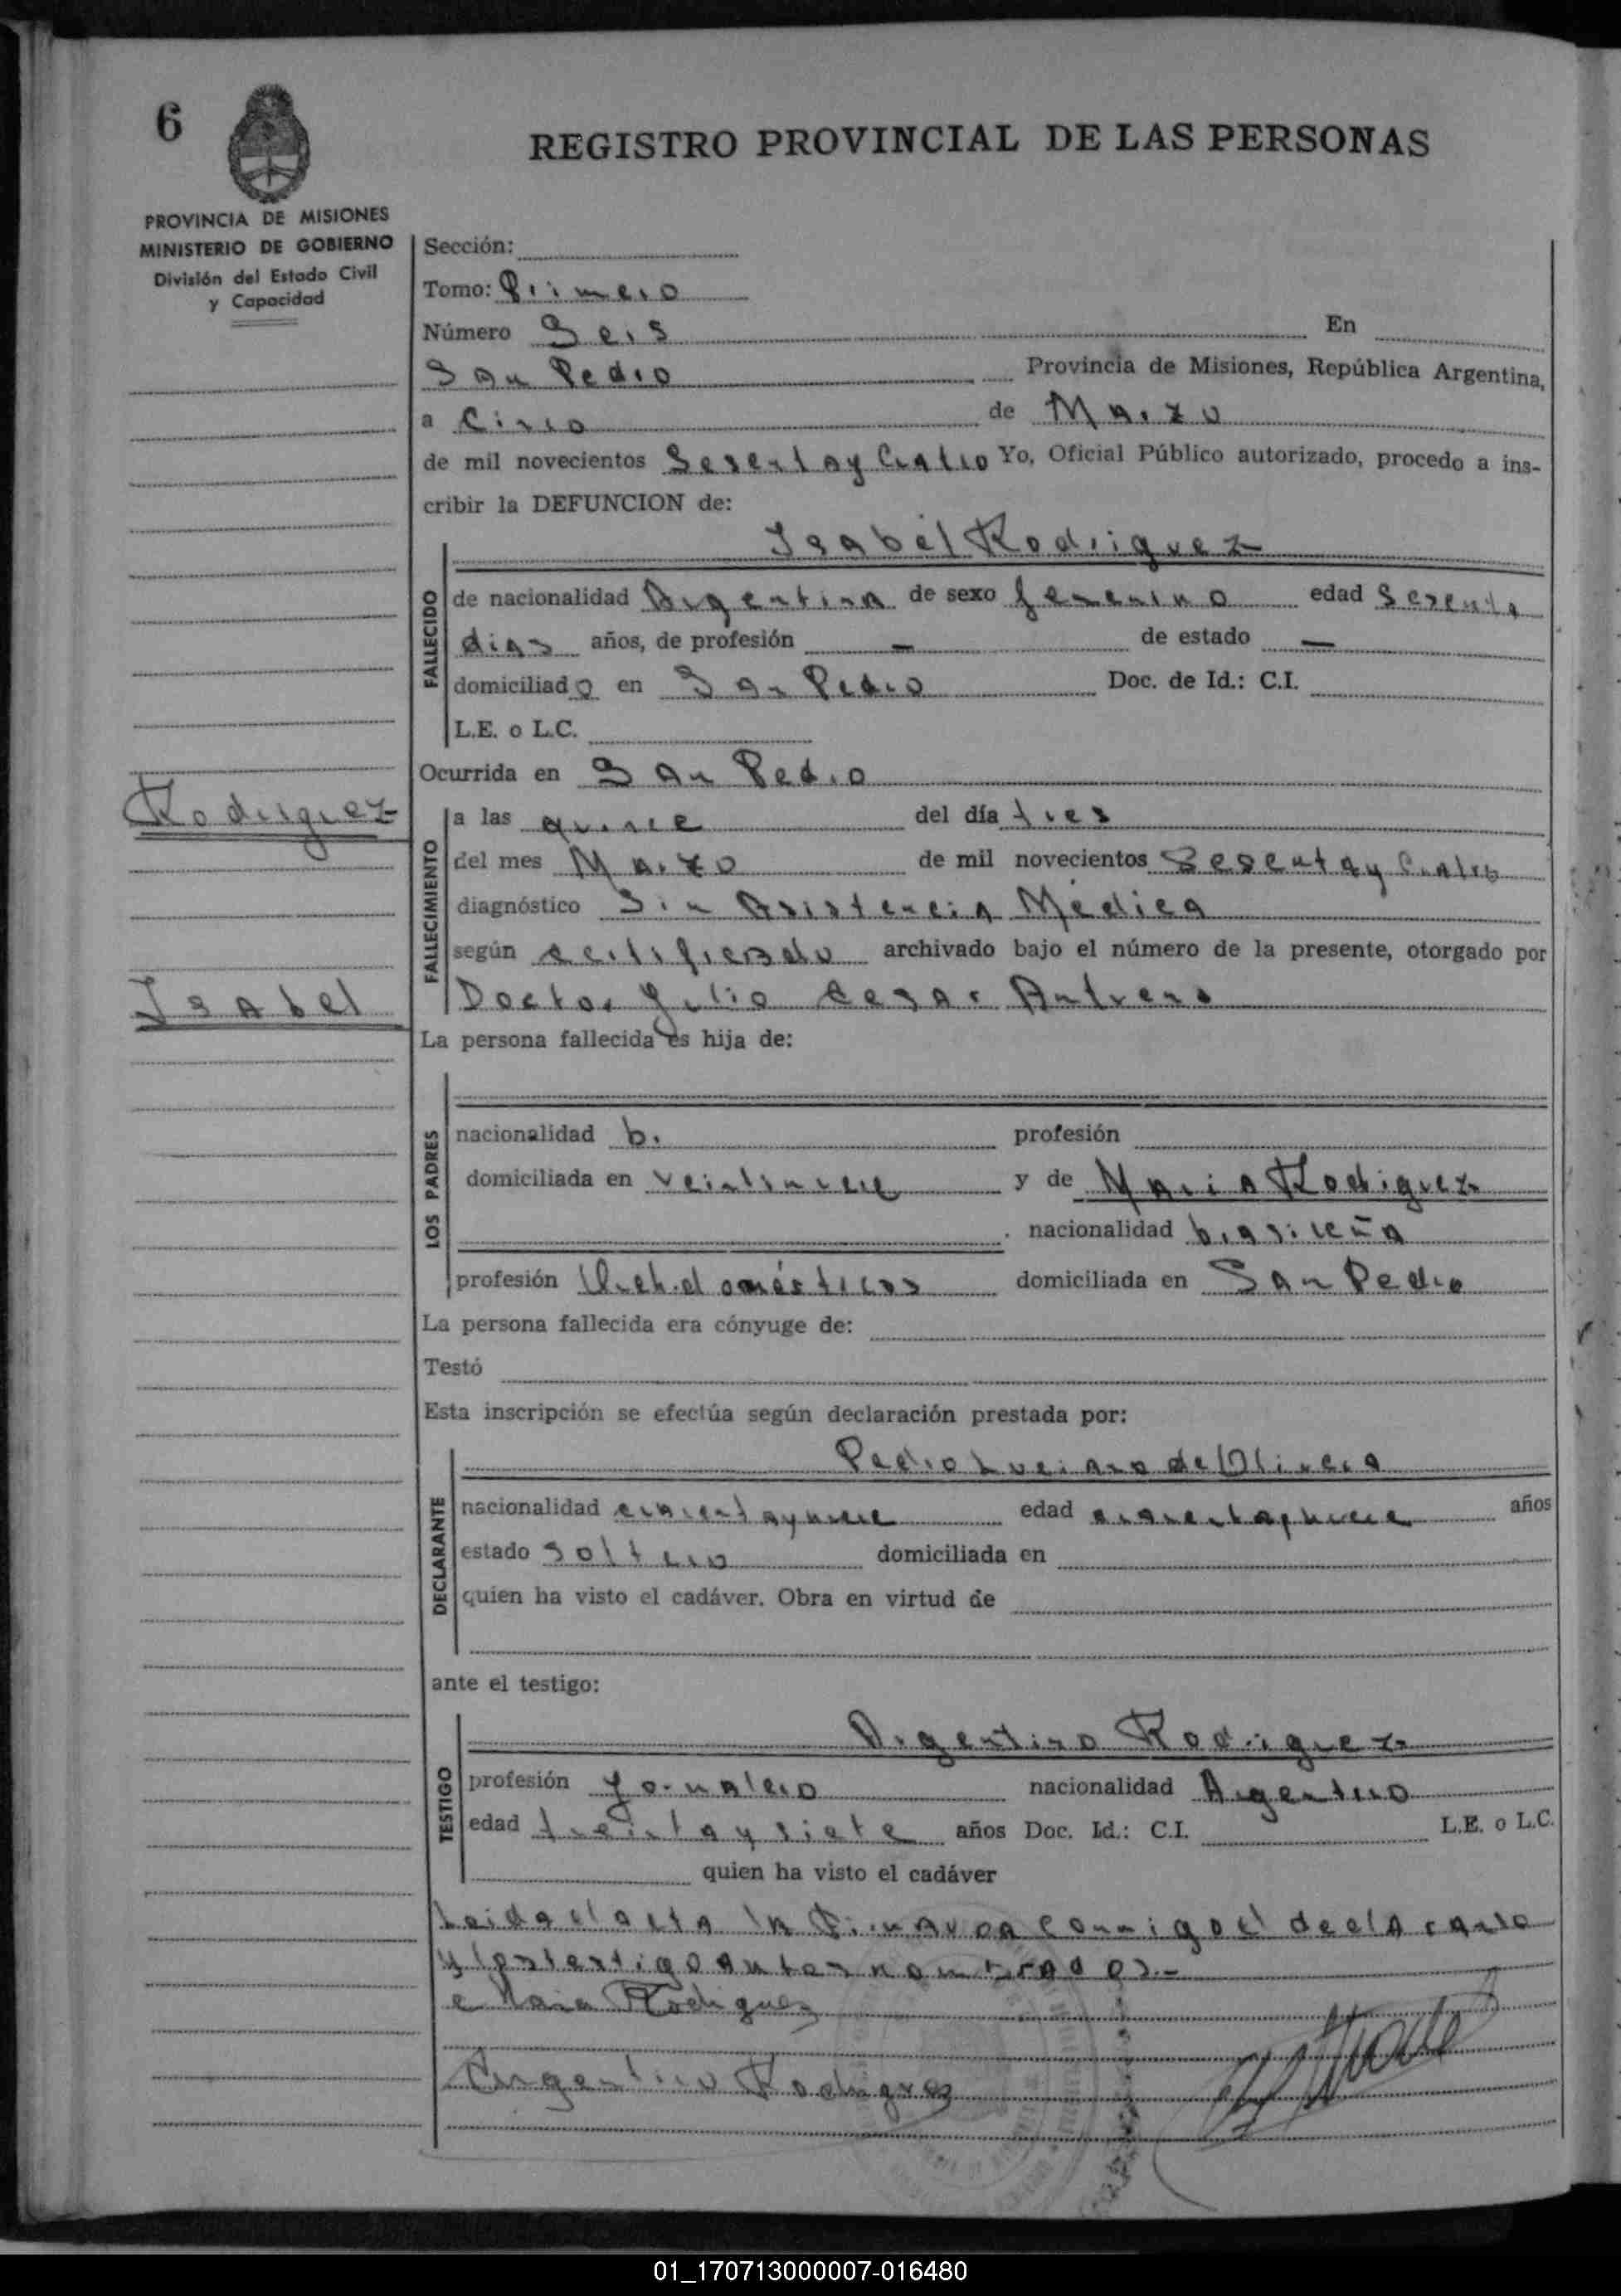 6
REGISTRO PROVINCIAL DE LAS PERSONAS
PROVINCIA DE MISIONES
MINISTERIO DE GOBIERNO
División del Estado Civil
y Capacidad
Sección:
Tomo: Primero
Número Seis En
San Pedro Provincia de Misiones, República Argentina,
a Cinco de Marzo
de mil novecientos Sesentay Cuatro Yo, Oficial Público autorizado, procedo a ins-
cribir la DEFUNCION de:
Isabel Rodriguez
FALLECIDO
de nacionalidad Argentina de sexo femenino edad Sesenta
dias años, de profesión — de estado —
domiciliado en San Pedro Doc. de Id.: C.I.
L.E. o L.C.
Ocurrida en San Pedro
Rodriguez
Isabel
FALLECIMIENTO
a las quince del día tres
del mes Marzo de mil novecientos Sesentay Cuatro
diagnóstico Sin Asistencia Médica
según certificado archivado bajo el número de la presente, otorgado por
Doctor Julio Cesar
La persona fallecida es hija de:
LOS PADRES
nacionalidad b. profesión
domiciliada en veintinueve y de Maria Rodriguez
nacionalidad brasileña
profesión Queh.domésticos domiciliada en San Pedro
La persona fallecida era cónyuge de:
Testó
Esta inscripción se efectúa según declaración prestada por:
Pedro Luciano de Olivera
DECLARANTE
nacionalidad edad años
estado Soltero domiciliada en
quien ha visto el cadáver. Obra en virtud de
ante el testigo:
Argentino Rodriguez
TESTIGO
profesión Jornalero nacionalidad Argentino
edad treintaysiete años Doc. Id.: C.I. L.E. o L.C.
quien ha visto el cadáver
Leida el acta la conmigo el declarante
y los testigo antes nombrados.-
Maria Rodriguez
Argentino Rodriguez
01_170713000007-016480